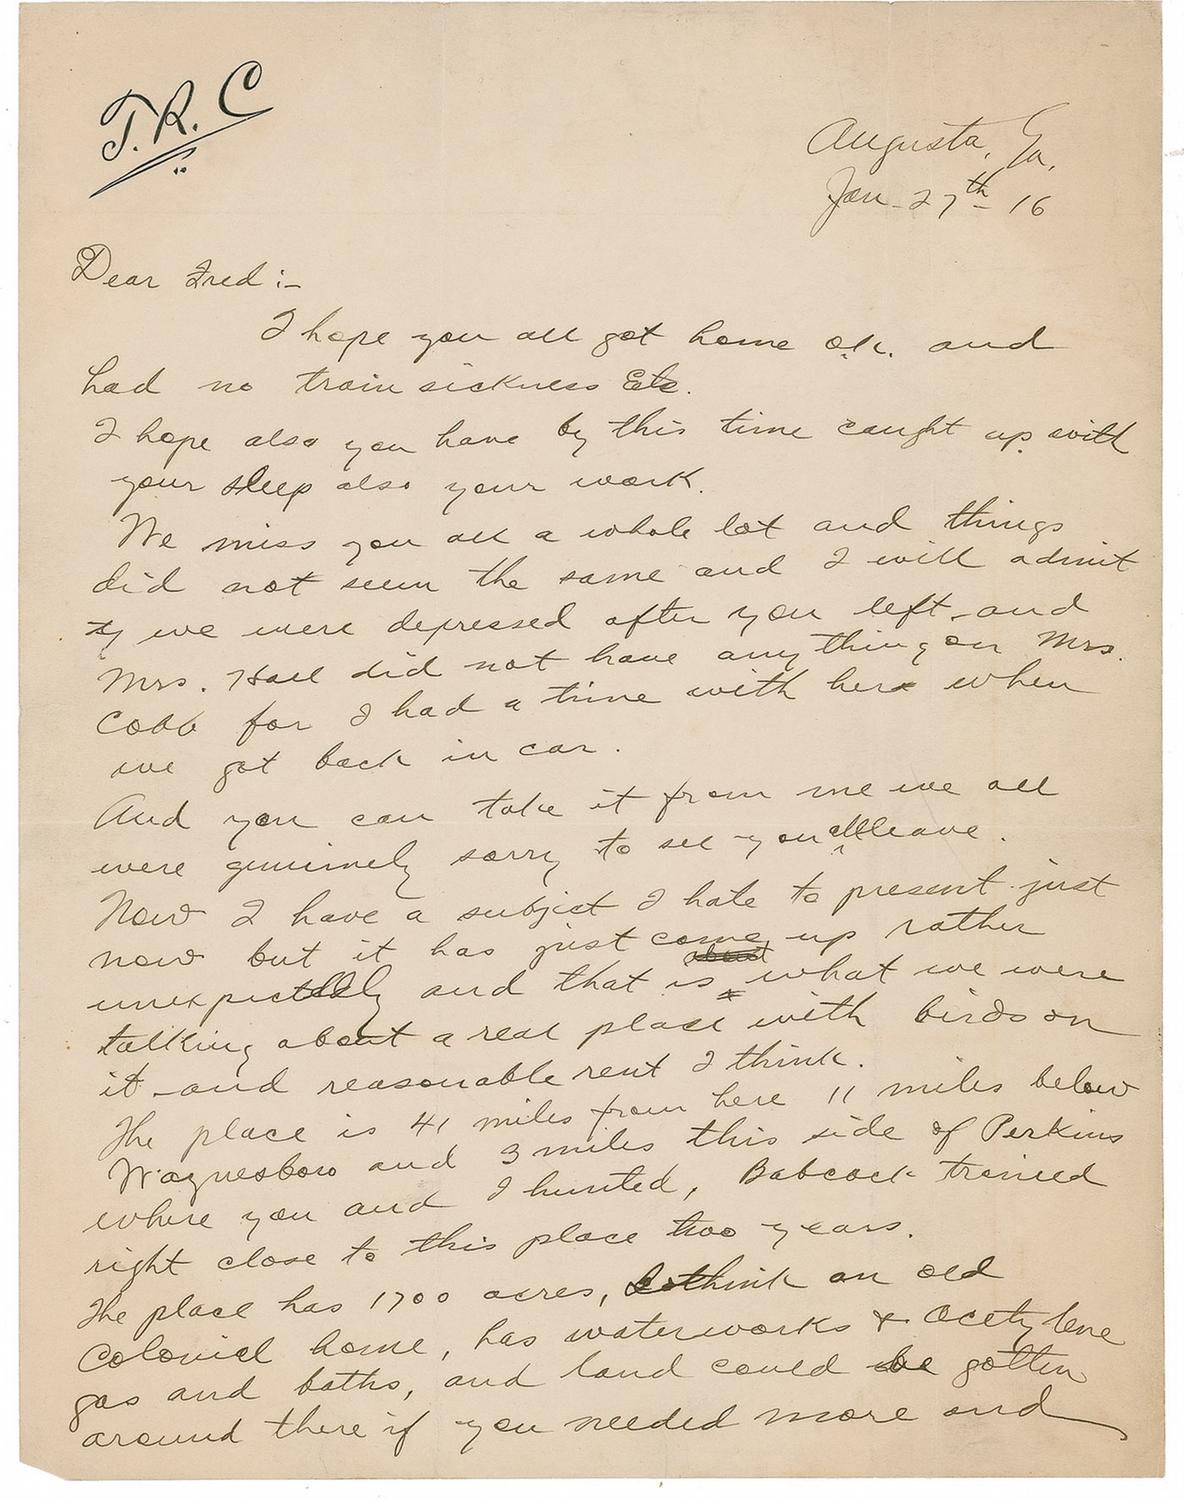 T.R.C
Augusta, Ga.
Jan-27th-16
Dear Fred:-
I hope you all got home o.k. and
had no train sickness Etc.
I hope also you have by this time caught up with
your sleep also your work.
We miss you all a whole lot and things
did not seem the same and I will admit
we were depressed after you left-and
Mrs. Hall did not have anything on Mrs.
Cobb for I had a time with her when
we got back in car.
And you can take it from me we all
were genuinely sorry to see you all leave.
Now I have a subject I hate to present just
now but it has just come up rather
unexpectedly and that is what we were
talking about a real place with birds on
it-and reasonable rent I think.
The place is 41 miles from here 11 miles below
Waynesboro and 3 miles this side of Perkins
where you and I hunted, Babcock trained
right close to this place two years.
The place has 1700 acres, think an old
Colonial home, has waterworks & Acetylene
gas and baths, and land could be gotten
around there if you needed more and